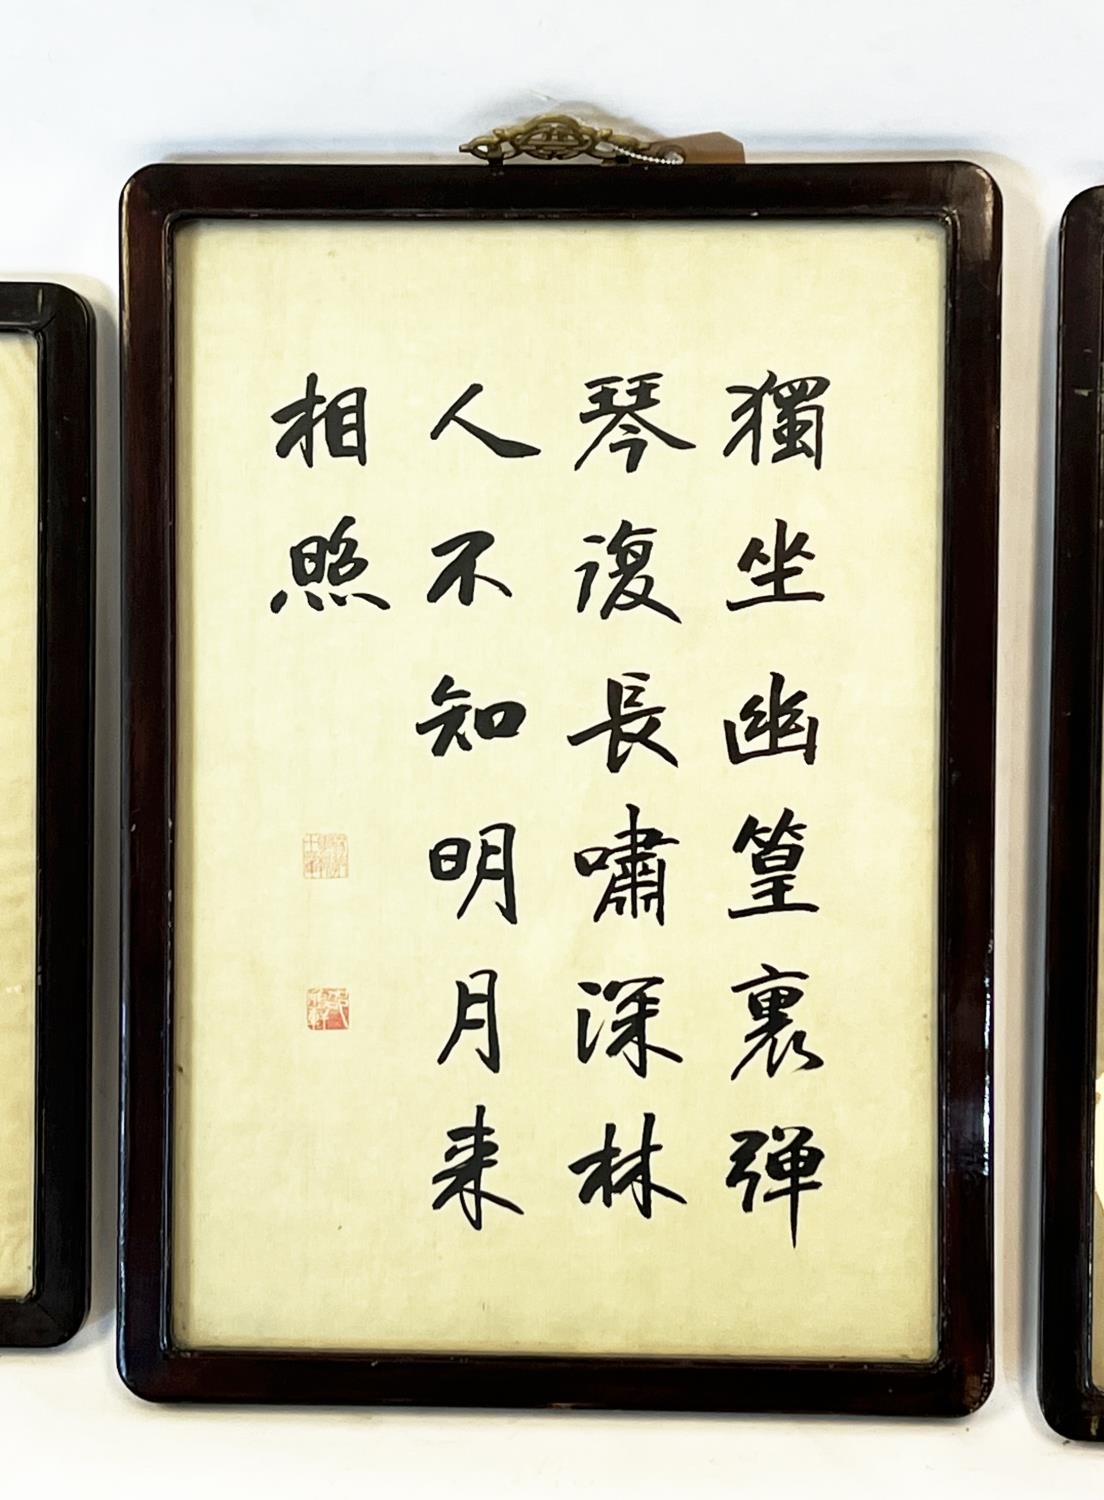 獨坐幽篁裏弹
琴復長嘯深林
人不知明月来
相照